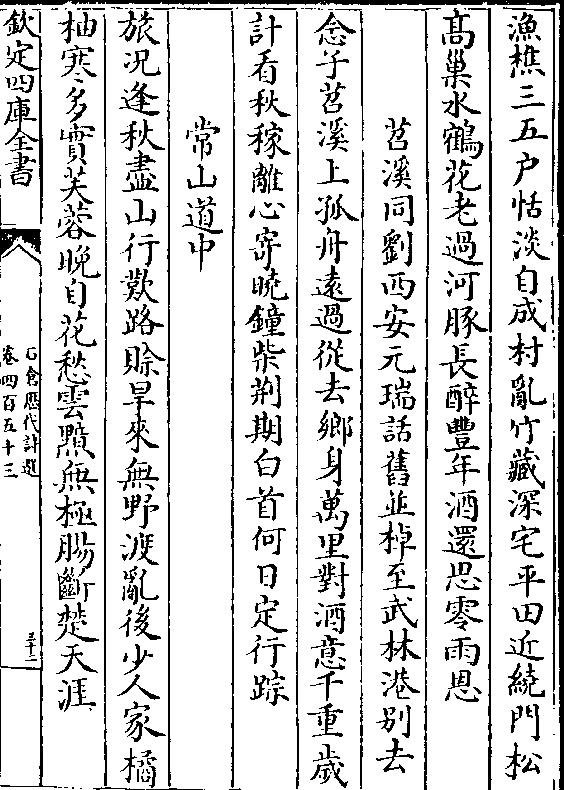 漁樵三五户恬淡自成村亂竹藏深宅平田近繞門松
髙巢水鶴花老過河豚長醉豐年酒還思零雨恩
苕溪同劉西安元瑞話舊並棹至武林港别去
念子苕溪上孤舟遠過從去鄉身萬里對酒意千重歲
計看秋稼離心寄曉鐘柴荆期白首何日定行踪
常山道中
旅况逢秋盡山行歎路賖旱來無野渡亂後少人家橘
柚寒多實芙蓉晚自花愁雲黯無極腸斷楚天涯
欽定四庫全書
石倉歷代詩選
卷四百五十三
三十二